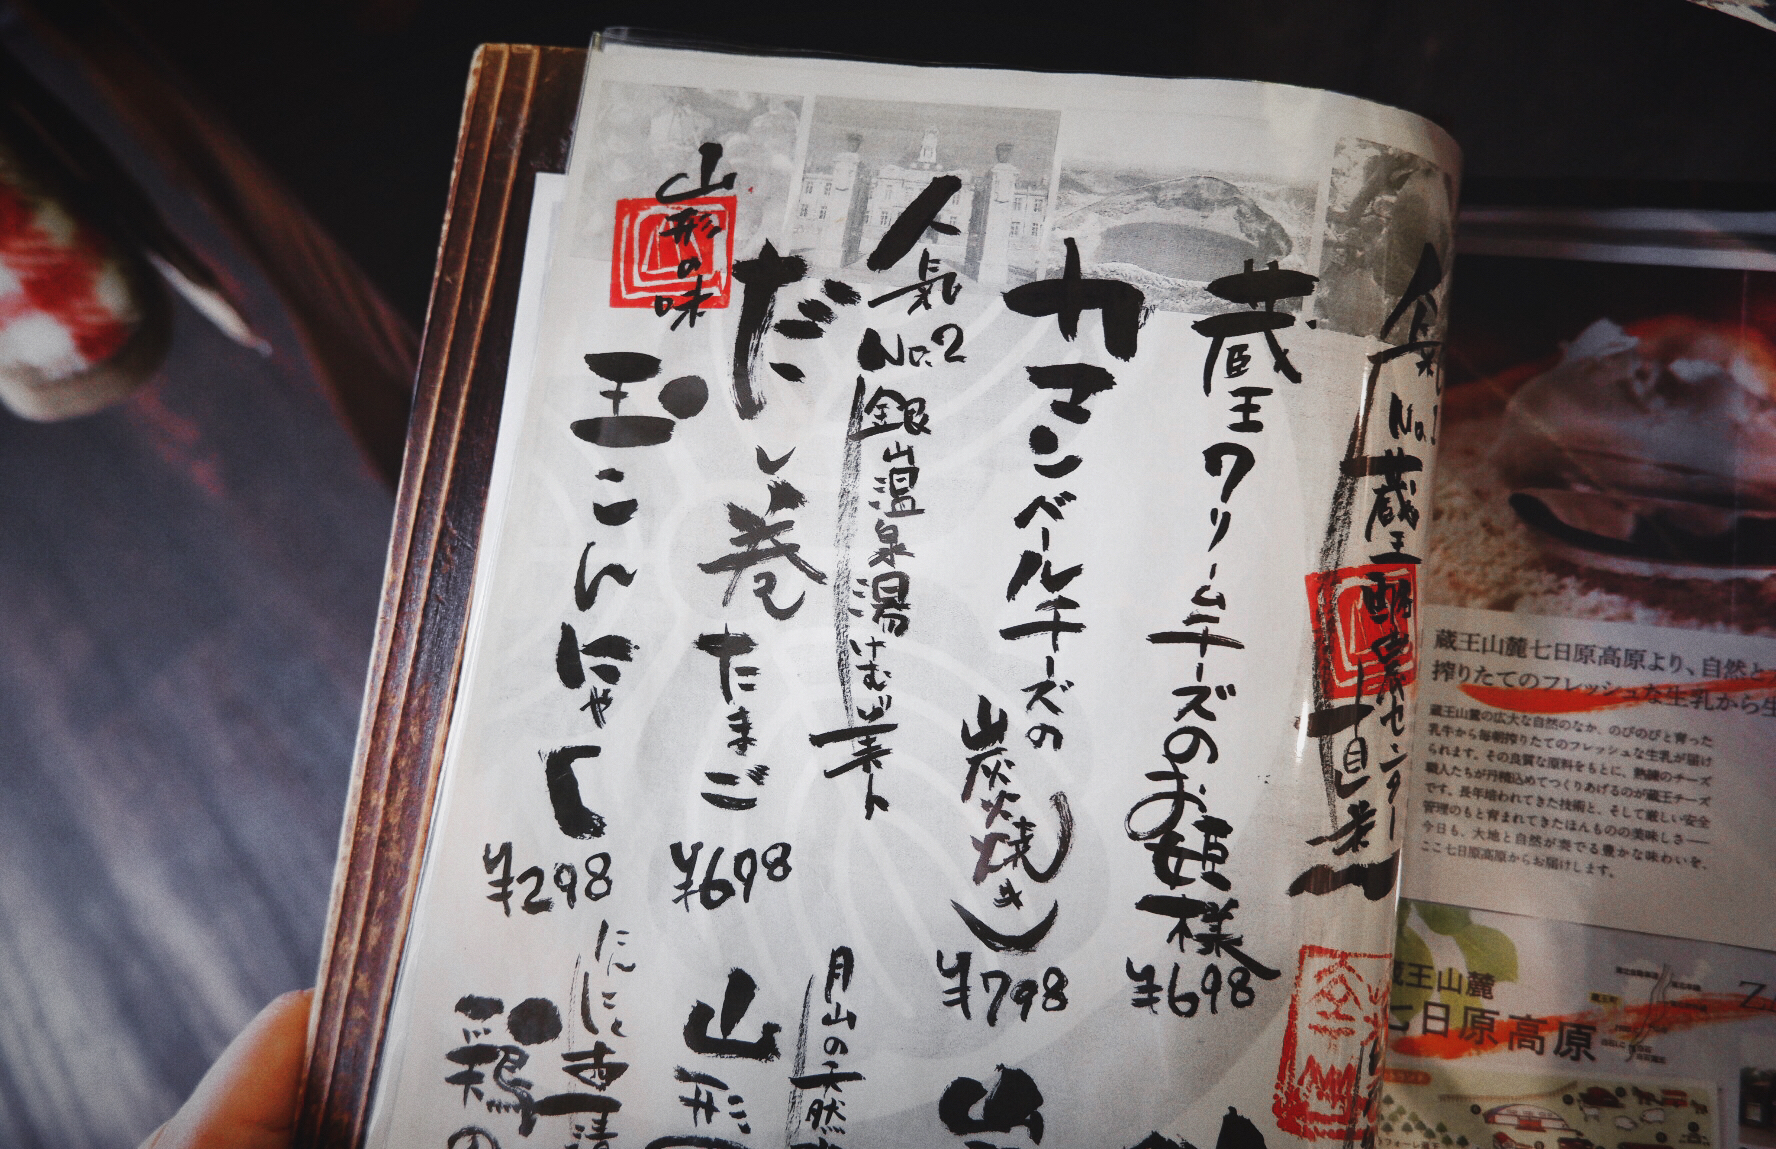 人気No.1 蔵王酪農センター直送
蔵王クリームチーズのお姫様
¥698
カマンベールチーズの
(山炭火焼き)
¥798
人気No.2 銀山温泉湯けむり
だし巻たまご
¥698
山形の味
玉こんにゃく
¥298
月山の天然
山形
にんにく
鶏の
蔵王山麓七日原高原より、自然と
搾りたてのフレッシュな生乳から生
蔵王山麓の広大な自然のなか、のびのびと育った
乳牛から毎朝搾りたてのフレッシュな生乳が届け
られます。その良質な原料をもとに、熟練のチーズ
職人たちが丹精込めてつくりあげるのが蔵王チーズ
です。長年培われてきた技術と、そして厳しい安全
管理のもと育まれてきたほんものの美味しさ——
今日も、大地と自然が奏でる豊かな味わいを、
ここ七日原高原からお届けします。
蔵王山麓
七日原高原